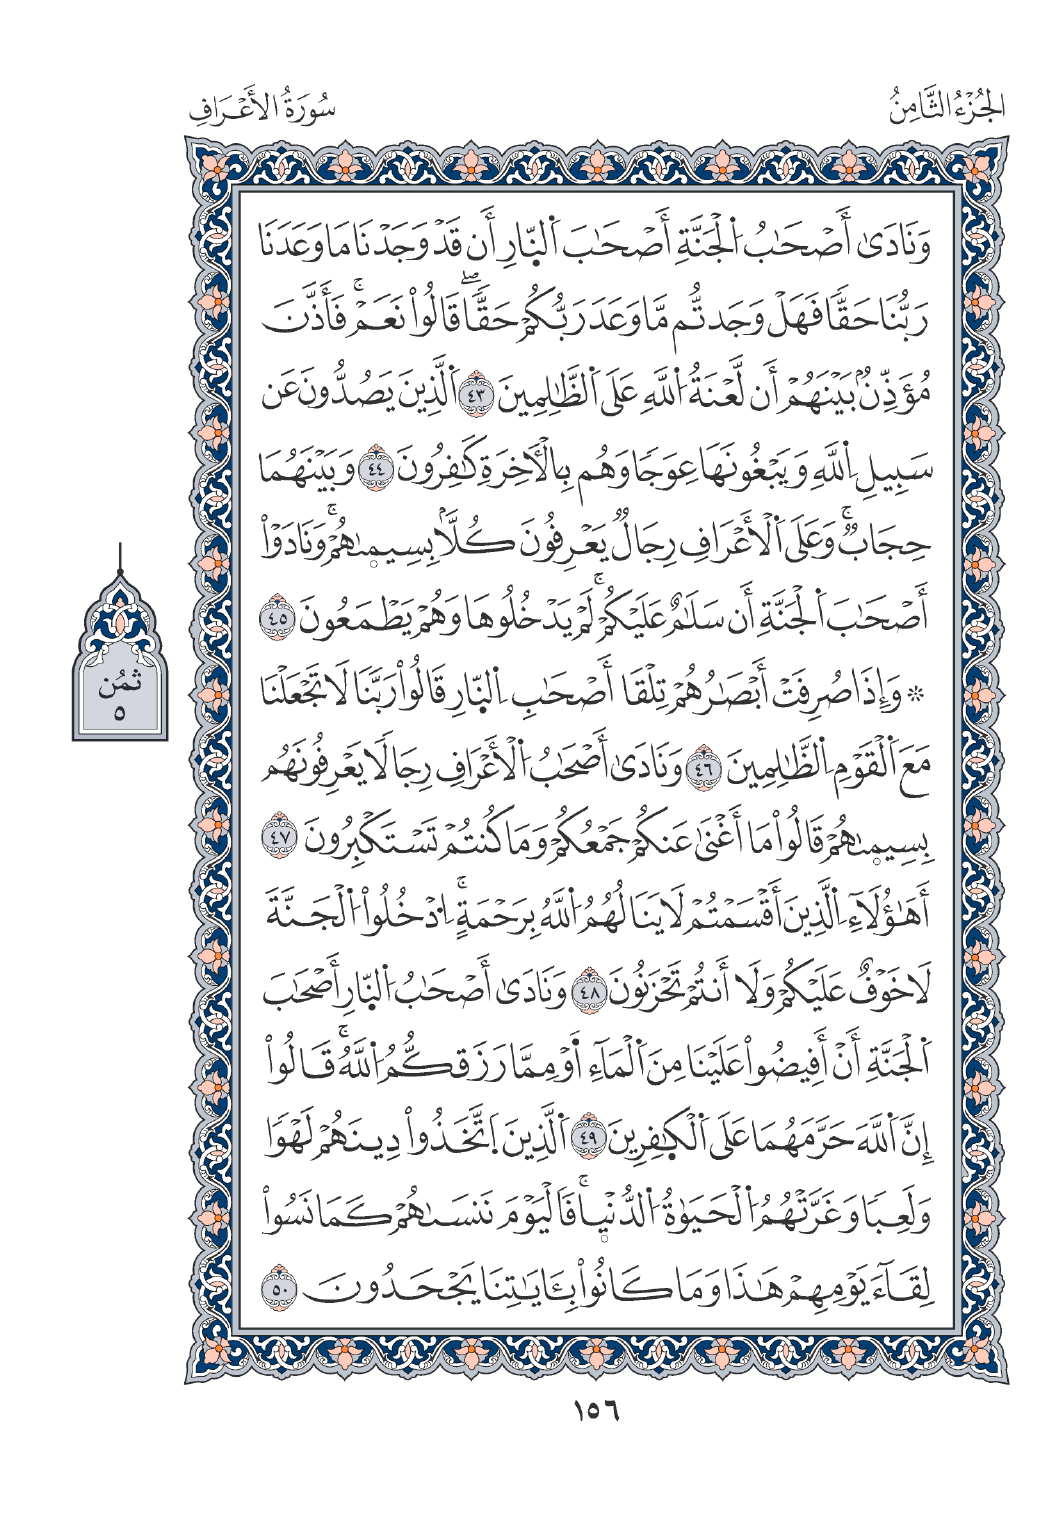 الجُزْءُ الثَّامِنُ
سُورَةُ الأَعْرَافِ
وَنَادَىٰ أَصْحَٰبُ اُ۬لْجَنَّةِ أَصْحَٰبَ اَ۬لنّ۪ارِ أَن قَدْ وَجَدْنَا مَا وَعَدَنَا
رَبُّنَا حَقّٗا فَهَلْ وَجَدتُّم مَّا وَعَدَ رَبُّكُمْ حَقّٗاۖ قَالُواْ نَعَمْۚ فَأَذَّنَ
مُؤَذِّنُۢ بَيْنَهُمْ أَن لَّعْنَةُ اُ۬للَّهِ عَلَى اَ۬لظَّٰلِمِينَ ٤٣ اَ۬لَّذِينَ يَصُدُّونَ عَن
سَبِيلِ اِ۬للَّهِ وَيَبْغُونَهَا عِوَجٗا وَهُم بِالْأٓخِرَةِ كَٰفِرُونَ ٤٤ وَبَيْنَهُمَا
حِجَابٞۚ وَعَلَى اَ۬لْأَعْرَافِ رِجَالٞ يَعْرِفُونَ كُلَّاۢ بِسِيم۪ىٰهُمْۚ وَنَادَوْاْ
أَصْحَٰبَ اَ۬لْجَنَّةِ أَن سَلَٰمٌ عَلَيْكُمْۚ لَمْ يَدْخُلُوهَا وَهُمْ يَطْمَعُونَ ٤٥
۞ وَإِذَا صُرِفَتْ أَبْصَٰرُهُمْ تِلْقَا أَصْحَٰبِ اِ۬لنّ۪ارِ قَالُواْ رَبَّنَا لَا تَجْعَلْنَا
مَعَ اَ۬لْقَوْمِ اِ۬لظَّٰلِمِينَ ٤٦ وَنَادَىٰ أَصْحَٰبُ اُ۬لْأَعْرَافِ رِجَالٗا يَعْرِفُونَهُم
بِسِيم۪ىٰهُمْ قَالُواْ مَا أَغْنَىٰ عَنكُمْ جَمْعُكُمْ وَمَا كُنتُمْ تَسْتَكْبِرُونَ ٤٧
أَهَٰؤُلَآءِ اِ۬لَّذِينَ أَقْسَمْتُمْ لَا يَنَالُهُمُ اُ۬للَّهُ بِرَحْمَةٍۚ اِ۟دْخُلُواْ اُ۬لْجَنَّةَ
لَا خَوْفٌ عَلَيْكُمْ وَلَا أَنتُمْ تَحْزَنُونَ ٤٨ وَنَادَىٰ أَصْحَٰبُ اُ۬لنّ۪ارِ أَصْحَٰبَ
اَ۬لْجَنَّةِ أَنْ أَفِيضُواْ عَلَيْنَا مِنَ اَ۬لْمَآءِ أَوْ مِمَّا رَزَقكُّمُ اُ۬للَّهُۚ قَالُواْ
إِنَّ اَ۬للَّهَ حَرَّمَهُمَا عَلَى اَ۬لْكٰ۪فِرِينَ ٤٩ اَ۬لَّذِينَ اَ۪تَّخَذُواْ دِينَهُمْ لَهْوٗا
وَلَعِبٗا وَغَرَّتْهُمُ اُ۬لْحَيَوٰةُ اُ۬لدُّنْي۪اۚ فَالْيَوْمَ نَنسَىٰهُمْ كَمَا نَسُواْ
لِقَآءَ يَوْمِهِمْ هَٰذَا وَمَا كَانُواْ بِـَٔايَٰتِنَا يَجْحَدُونَ ٥٠
ثُمُن
٥
١٥٦